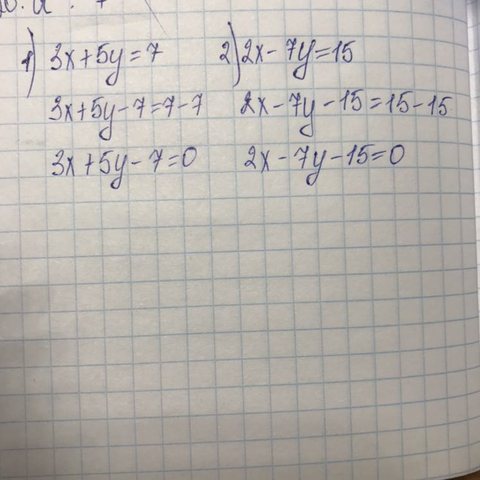 1) 3x+5y=7
3x+5y-7=7-7
3x+5y-7=0
2) 2x-7y=15
2x-7y-15=15-15
2x-7y-15=0